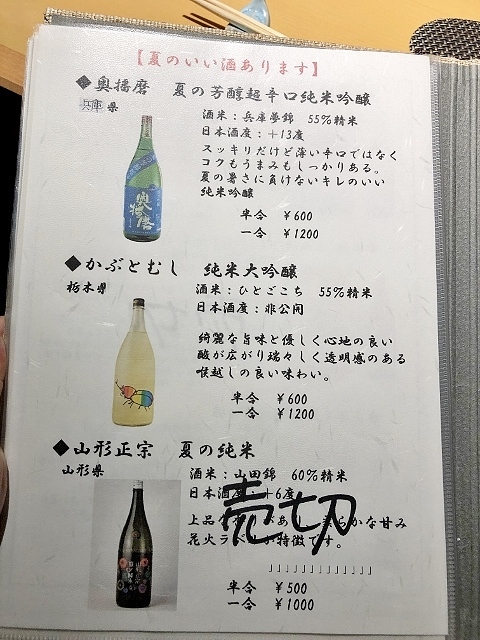 【夏のいい酒あります】
◆奥播磨 夏の芳醇超辛口純米吟醸
兵庫県
酒米：兵庫夢錦 55%精米
日本酒度：＋13度
スッキリだけど薄い辛口ではなく
コクもうまみもしっかりある。
夏の暑さに負けないキレのいい
純米吟醸
半合 ￥600
一合 ￥1200
奥播磨
◆かぶとむし 純米大吟醸
栃木県
酒米：ひとごこち 55%精米
日本酒度：非公開
綺麗な旨味と優しく心地の良い
酸が広がり瑞々しく透明感のある
喉越しの良い味わい。
半合 ￥600
一合 ￥1200
◆山形正宗 夏の純米
山形県
酒米：山田錦 60%精米
日本酒度：＋6度
売切
上品な があ らかな甘み
花火ラベ 特徴です。
半合 ￥500
一合 ￥1000